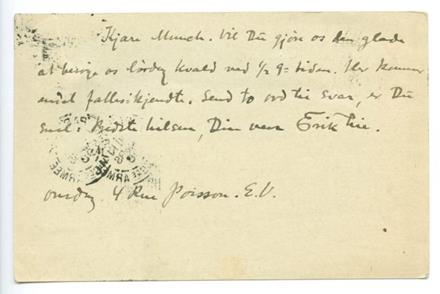 Kjære Munch. Vil Du gjøre os den glæde
at besøge os lørdag kvæld ved ½ 9-tiden. Her kommer
Send to ord til svar, er Du
snil. Bedste hilsen, Din ven Erik Lie.
onsdag 4 Rue Poisson. E.V.